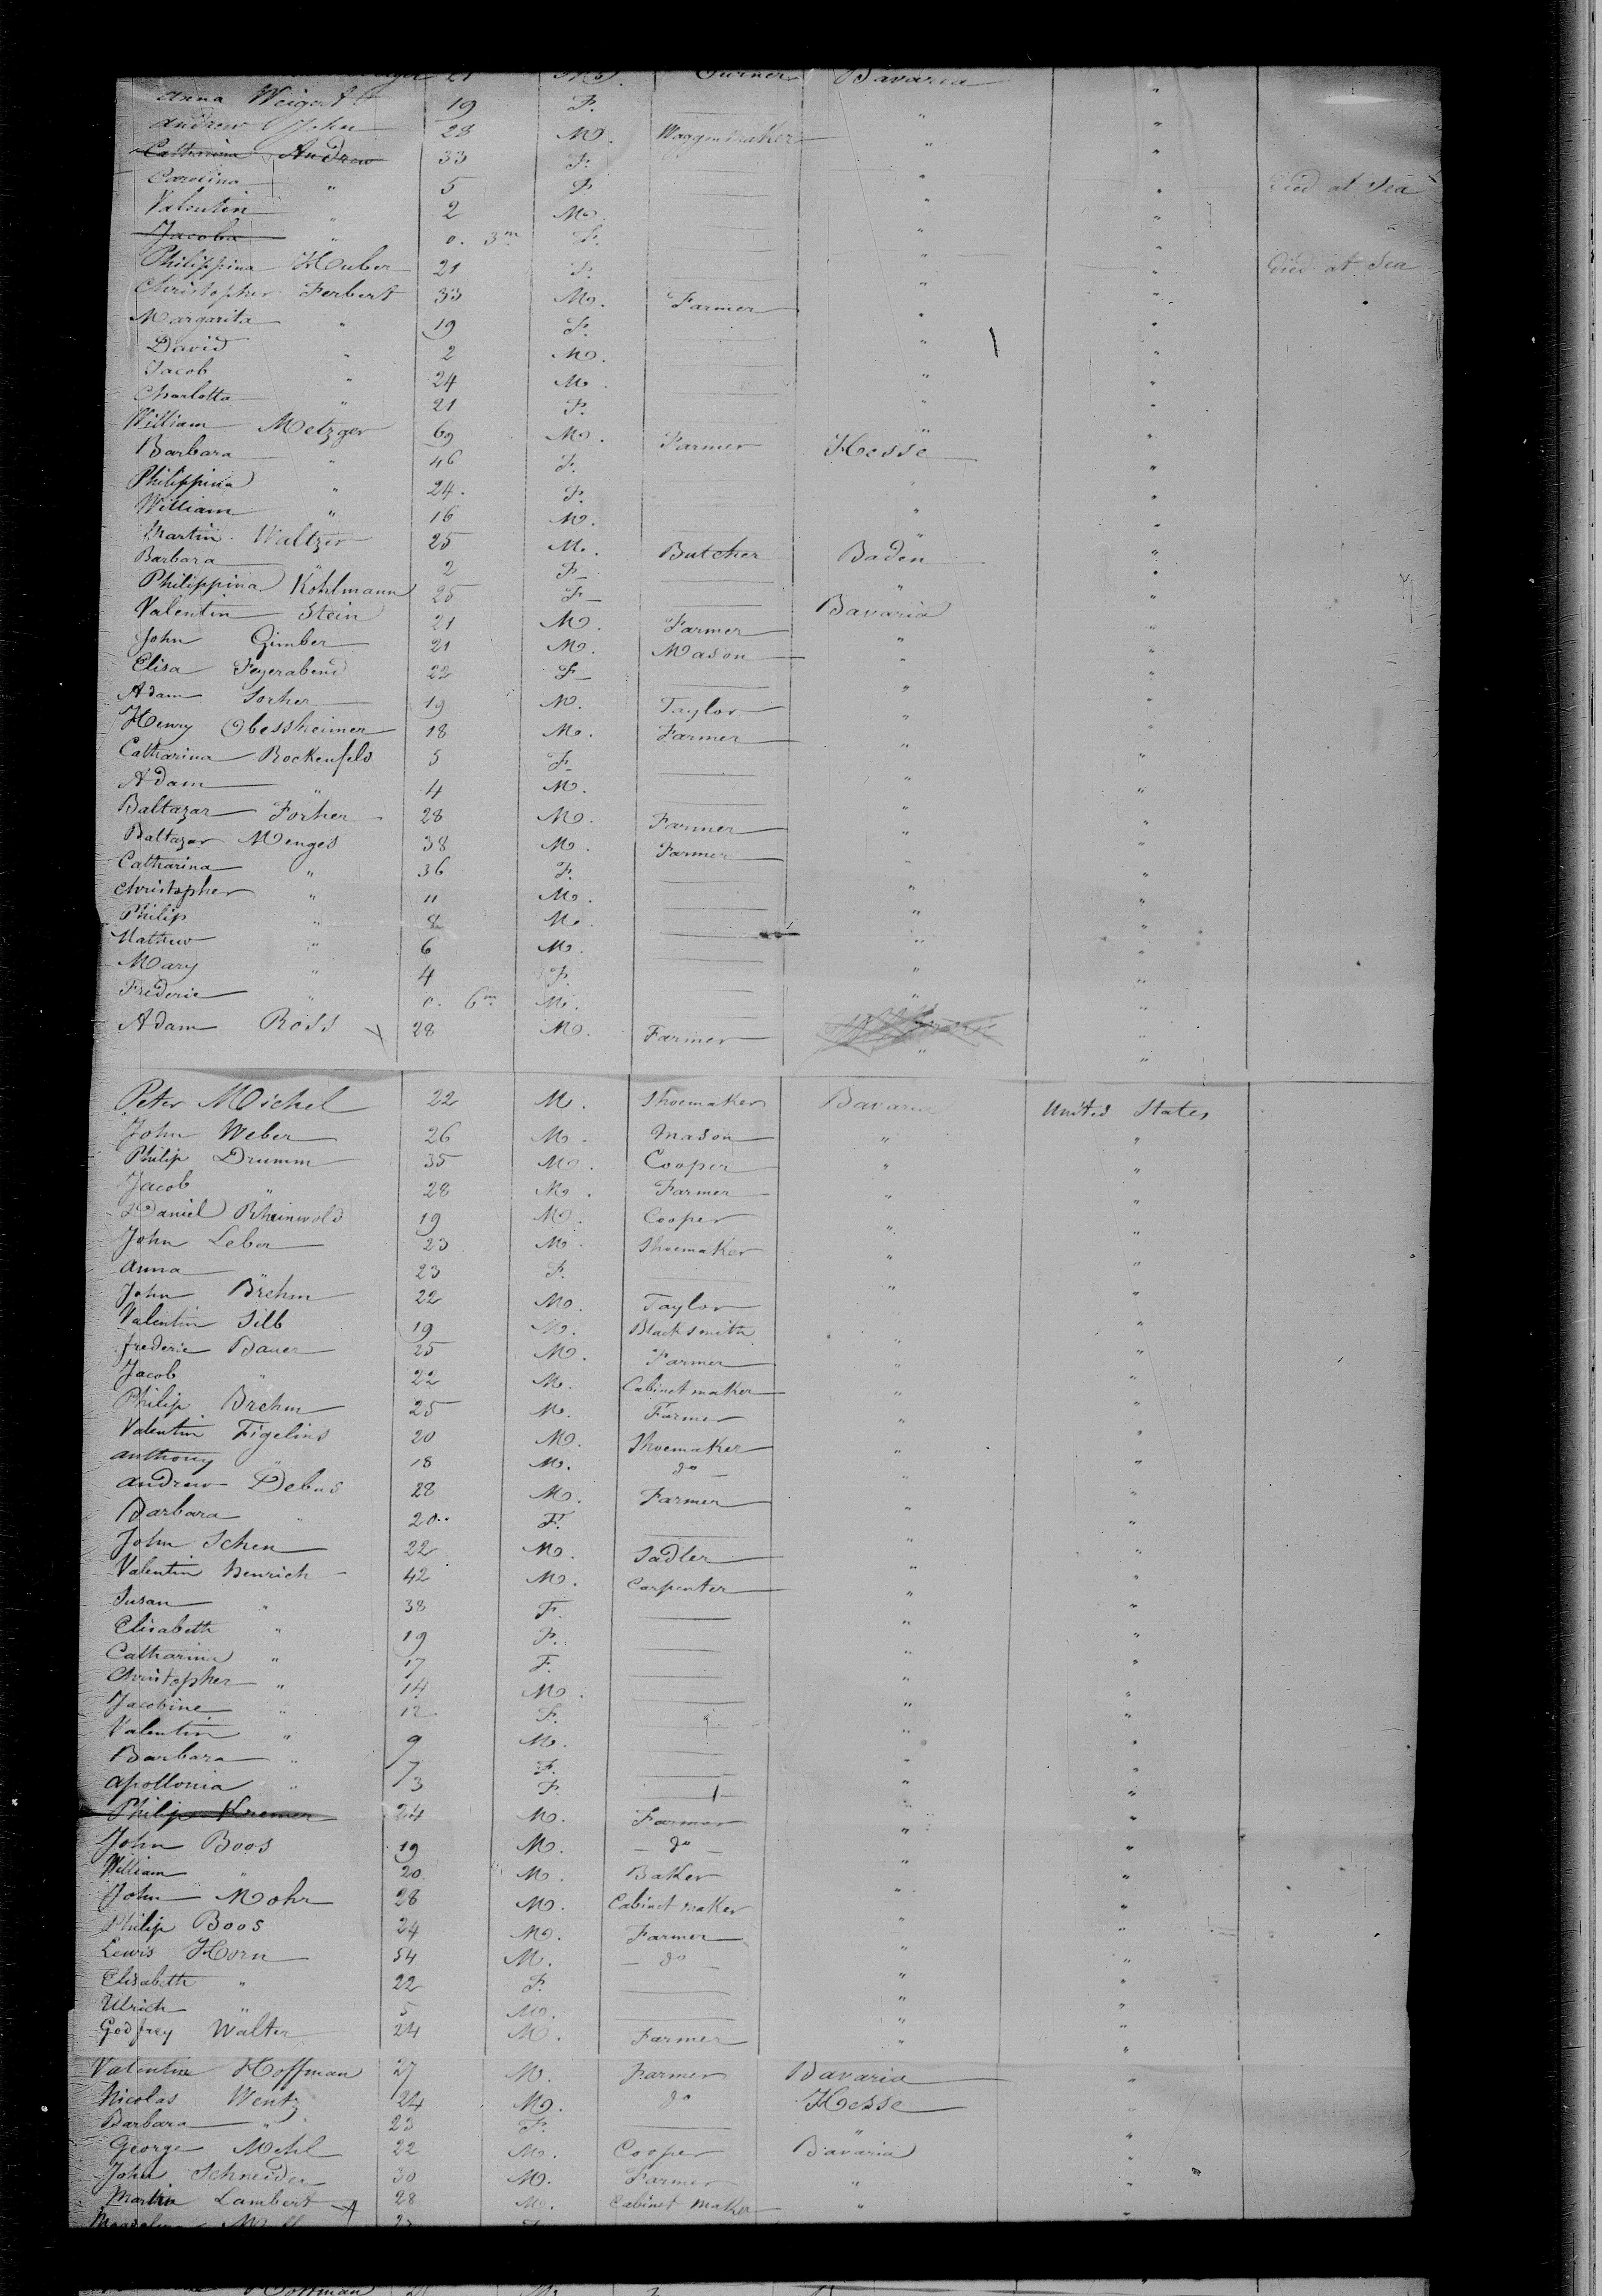 21 M. Turner Bavaria
Anna Weigert 19 F. — " "
Andrew John 28 M. Waggonmaker " "
Catharina Andrew 33 F. — " " Died at Sea
Carolina " 5 F. — " "
Valentin " 2 M. — " "
Jacoba " 0. 3m F. — " " Died at Sea
Philippina Huber 21 F. — " "
Christopher Ferbert 33 M. Farmer " "
Margarita " 19 F. — " "
David " 2 M. — " "
Jacob " 24 M. — " "
Charlotta " 21 F. — " "
William Metzger 69 M. Farmer Hesse "
Barbara " 46 F. — " "
Philippina " 24. F. — " "
William " 16 M. — " "
Martin Waltzer 25 M. Butcher Baden "
Barbara 2 F — " "
Philippina Köhlmann 25 F — Bavaria "
Valentin Stein 21 M. Farmer " "
John Gimber 21 M. Mason " "
Elisa Feyerabend 22 F — " "
Adam Sorher 19 M. Taylor " "
Henry Obessheimer 18 M. Farmer " "
Catharina Bockenfeld 5 F — " "
Adam " 4 M. — " "
Baltazar Forher 28 M. Farmer " "
Baltazar Menges 38 M. Farmer " "
Catharina " 36 F. — " "
Christopher " 11 M. — " "
Philip " 8 M. — " "
Mathew " 6 M. — " "
Mary " 4 F. — " "
Frederic " 0. 6m M. — " "
Adam Ross 28 M. Farmer " "
Peter Michel 22 M. Shoemaker Bavaria United States
John Weber 26 M. Mason " "
Philip Drumm 35 M. Cooper " "
Jacob " 28 M. Farmer " "
Daniel Rheinwold 19 M. Cooper " "
John Leber 23 M. Shoemaker " "
Anna " 23 F. — " "
John Brehm 22 M. Taylor " "
Valentin Silb 19 M. Blacksmith " "
Frederic Bauer 25 M. Farmer " "
Jacob " 22 M. Cabinet maker " "
Philip Brehm 25 M. Farmer " "
Valentin Figelins 20 M. Shoemaker " "
Anthony " 18 M. do " "
Andrew Debus 28 M. Farmer " "
Barbara " 20 F. — " "
John Schen 22 M. Sadler " "
Valentin Henrich 42 M. Carpenter " "
Susan " 38 F. — " "
Elisabeth " 19 F. — " "
Catharina " 17 F. — " "
Christopher " 14 M. — " "
Jacobine " 12 F. — " "
Valentin " 9 M. — " "
Barbara " 7 F. — " "
Apollonia " 3 F. — " "
Philip Kremer 24 M. Farmer " "
John Boos 19 M. do " "
William " 20 M. Baker " "
John Mohr 28 M. Cabinet maker " "
Philip Boos 24 M. Farmer " "
Lewis Horn 54 M. do " "
Elisabeth " 22 F. — " "
Ulrich " 5 M. — " "
Godfrey Walter 24 M. Farmer " "
Valentin Hoffman 27 M. Farmer Bavaria "
Nicolas Wentz 24 M. do Hesse "
Barbara " 23 F. — " "
George Mehl 22 M. Cooper Bavaria "
John Schneider 30 M. Farmer " "
Martin Lambert 28 M. Cabinet Maker " "
Hoffman